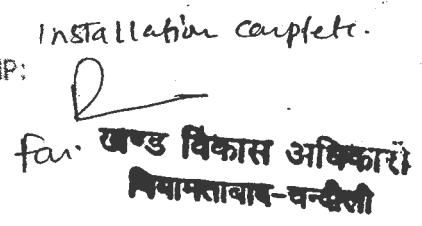 Installation complete.
IP:
For. खण्ड विकास अधिकारी
नियामताबाद-चन्दौली